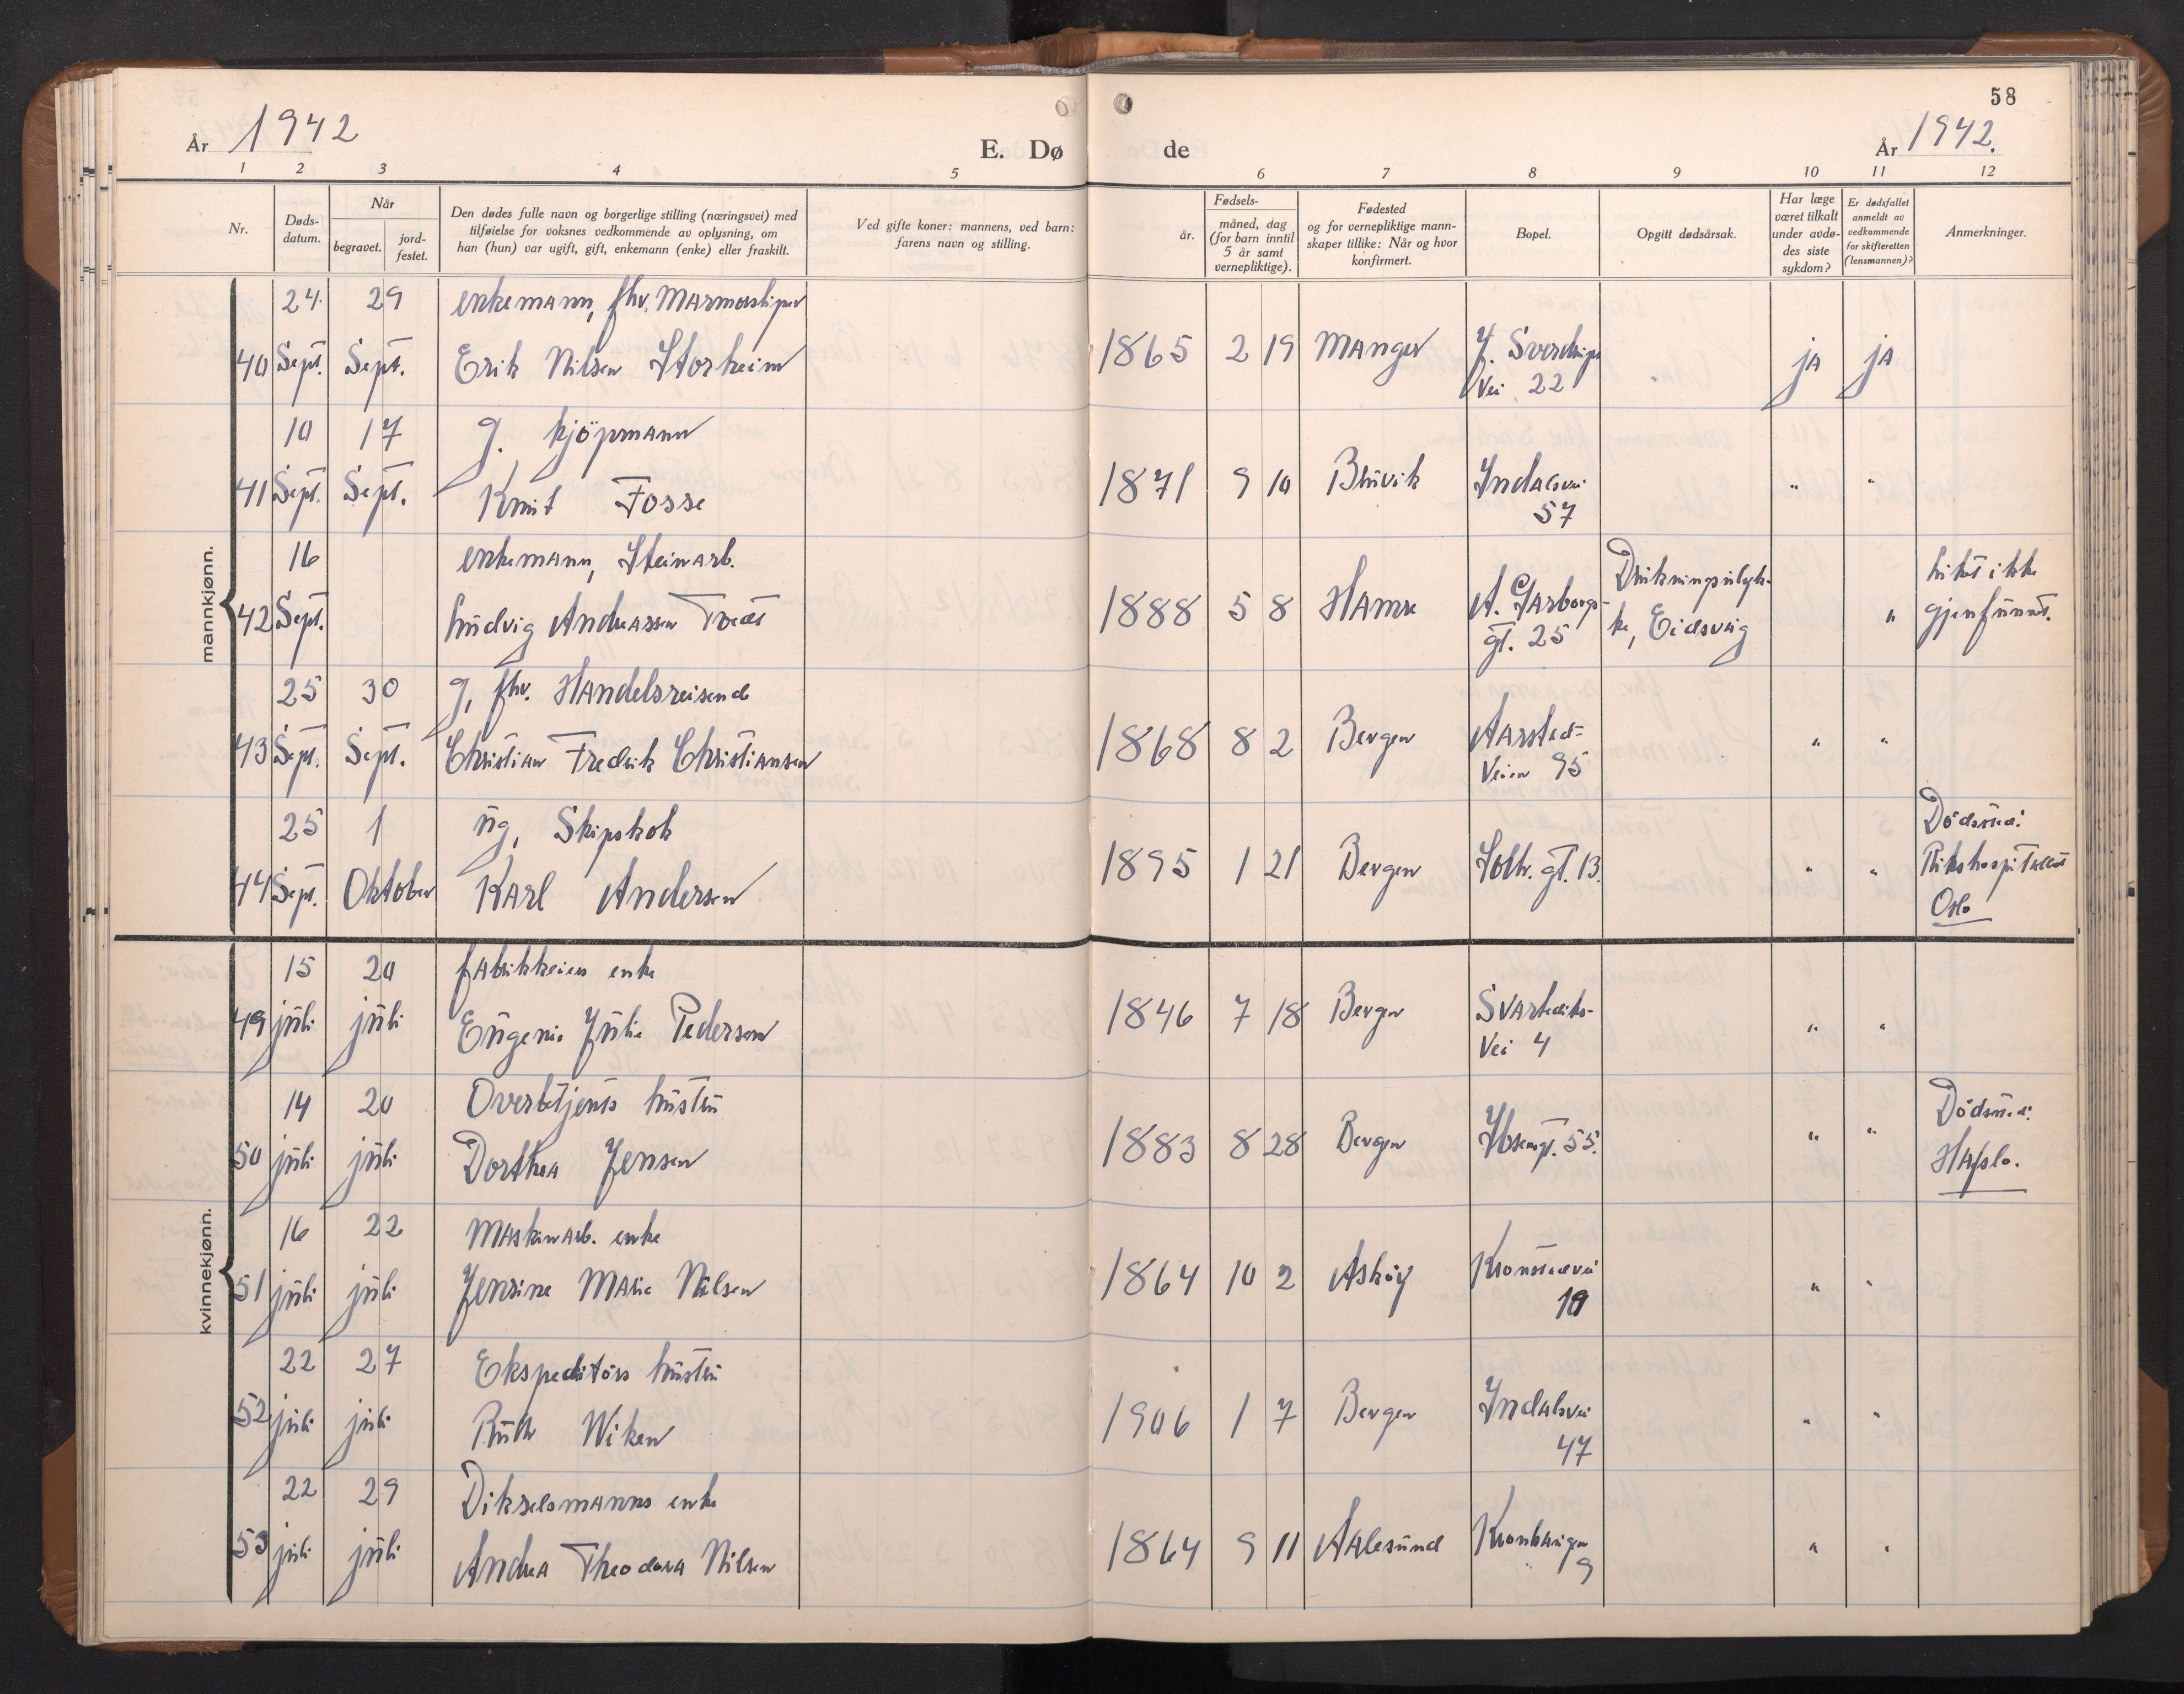 58
År 1942
E. Dø de
År 1942.
1 2 3 4 5 6 7 8 9 10 11 12
Nr.
Døds-
datum.
Når
begravet.
jord-
festet.
Den dødes fulle navn og borgerlige stilling (næringsvei) med
tilføielse for voksnes vedkommende av oplysning, om
han (hun) var ugift, gift, enkemann (enke) eller fraskilt.
Ved gifte koner: mannens, ved barn:
farens navn og stilling.
Fødsels-
år.
måned, dag
(for barn inntil
5 år samt
vernepliktige).
Fødested
og for vernepliktige mann-
skaper tillike: Når og hvor
konfirmert.
Bopel.
Opgitt dødsårsak.
Har læge
været tilkalt
under avdø-
des siste
sykdom?
Er dødsfallet
anmeldt av
vedkommende
for skifteretten
(lensmannen)?
Anmerkninger.
mannkjønn.
24. 29 enkemann, fhv. Marmorsliper
40 Sept. Sept. Erik Nilsen Storheim 1865 2 19 Manger J. Sverdrups ja ja
Vei 22
10 17 g. kjöpmann
41 Sept. Sept. Knut Fosse 1871 9 10 Bruvik Indalsvei " "
57
16 enkemann, Steinarb. Drukningsulyk- Liket ikke
42 Sept. Ludvig Andreassen 1888 5 8 Hamre A. Garborgs- ke, Eidsvåg " gjenfunnet.
gt. 25
25 30 g, fhv. Handelsreisende
43 Sept. Sept. Christian Fredrik Christiansen 1868 8 2 Bergen Aarstad- " "
Veien 95
25 1 ug, Skipskok Dödssted:
44 Sept. Oktober Karl Andersen 1895 1 21 Bergen Solh. gt. 13. " " Rikshospitalet
Oslo
kvinnekjønn.
15 20 fabrikkeiers enke
49 juli juli Eugenie Julie Pedersen 1846 7 18 Bergen Svartediks- " "
Vei 4
14 20 Overbetjents hustru Dödssted:
50 juli juli Dorthea Jensen 1883 8 28 Bergen Ibsensgt. 55. " " Hafslo.
16 22 Maskinarb. enke
51 juli juli Jensine Marie Nilsen 1864 10 2 Askøy Kronstadvei " "
19
22 27 Ekspeditörs hustru
52 juli juli Ruth Wiken 1906 1 7 Bergen Indalsvei " "
47
22 29 Dikselsmanns enke
53 juli juli Andrea Theodora Nilsen 1864 9 11 Aalesund Kronborgen " "
9